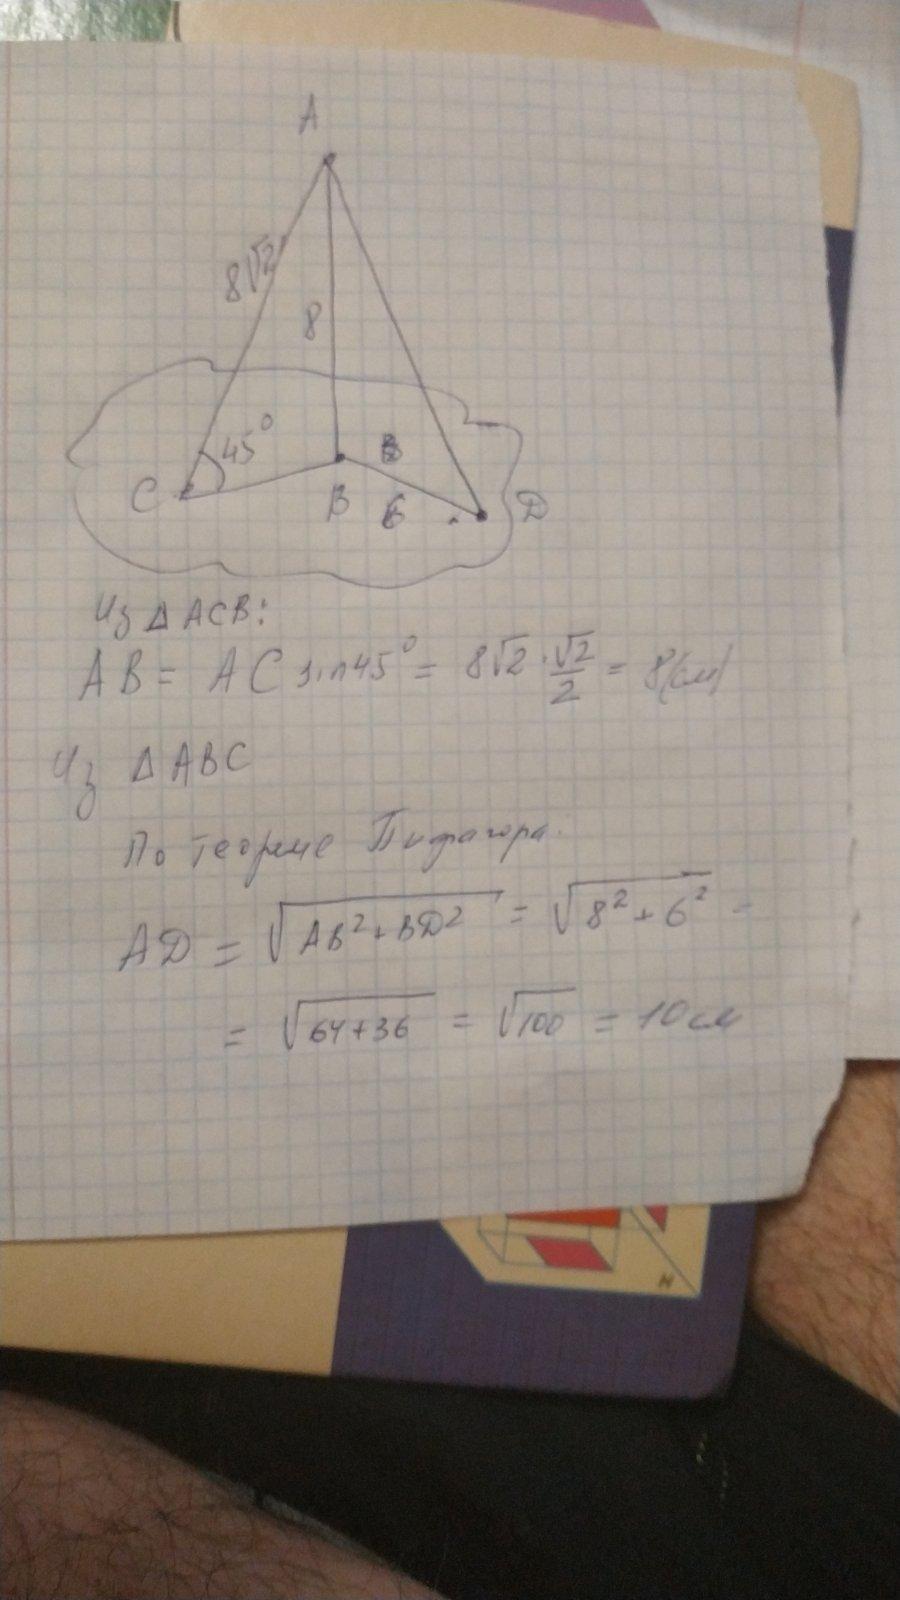 A
8√2
8
45°
C
B
6
D
Из Δ ACB:
AB = AC sin45° = 8√2 · √2/2 = 8(см)
Из Δ ABC
По теореме Пифагора.
AD = √(AB² + BD²) = √(8² + 6²) =
= √(64+36) = √100 = 10 см
H